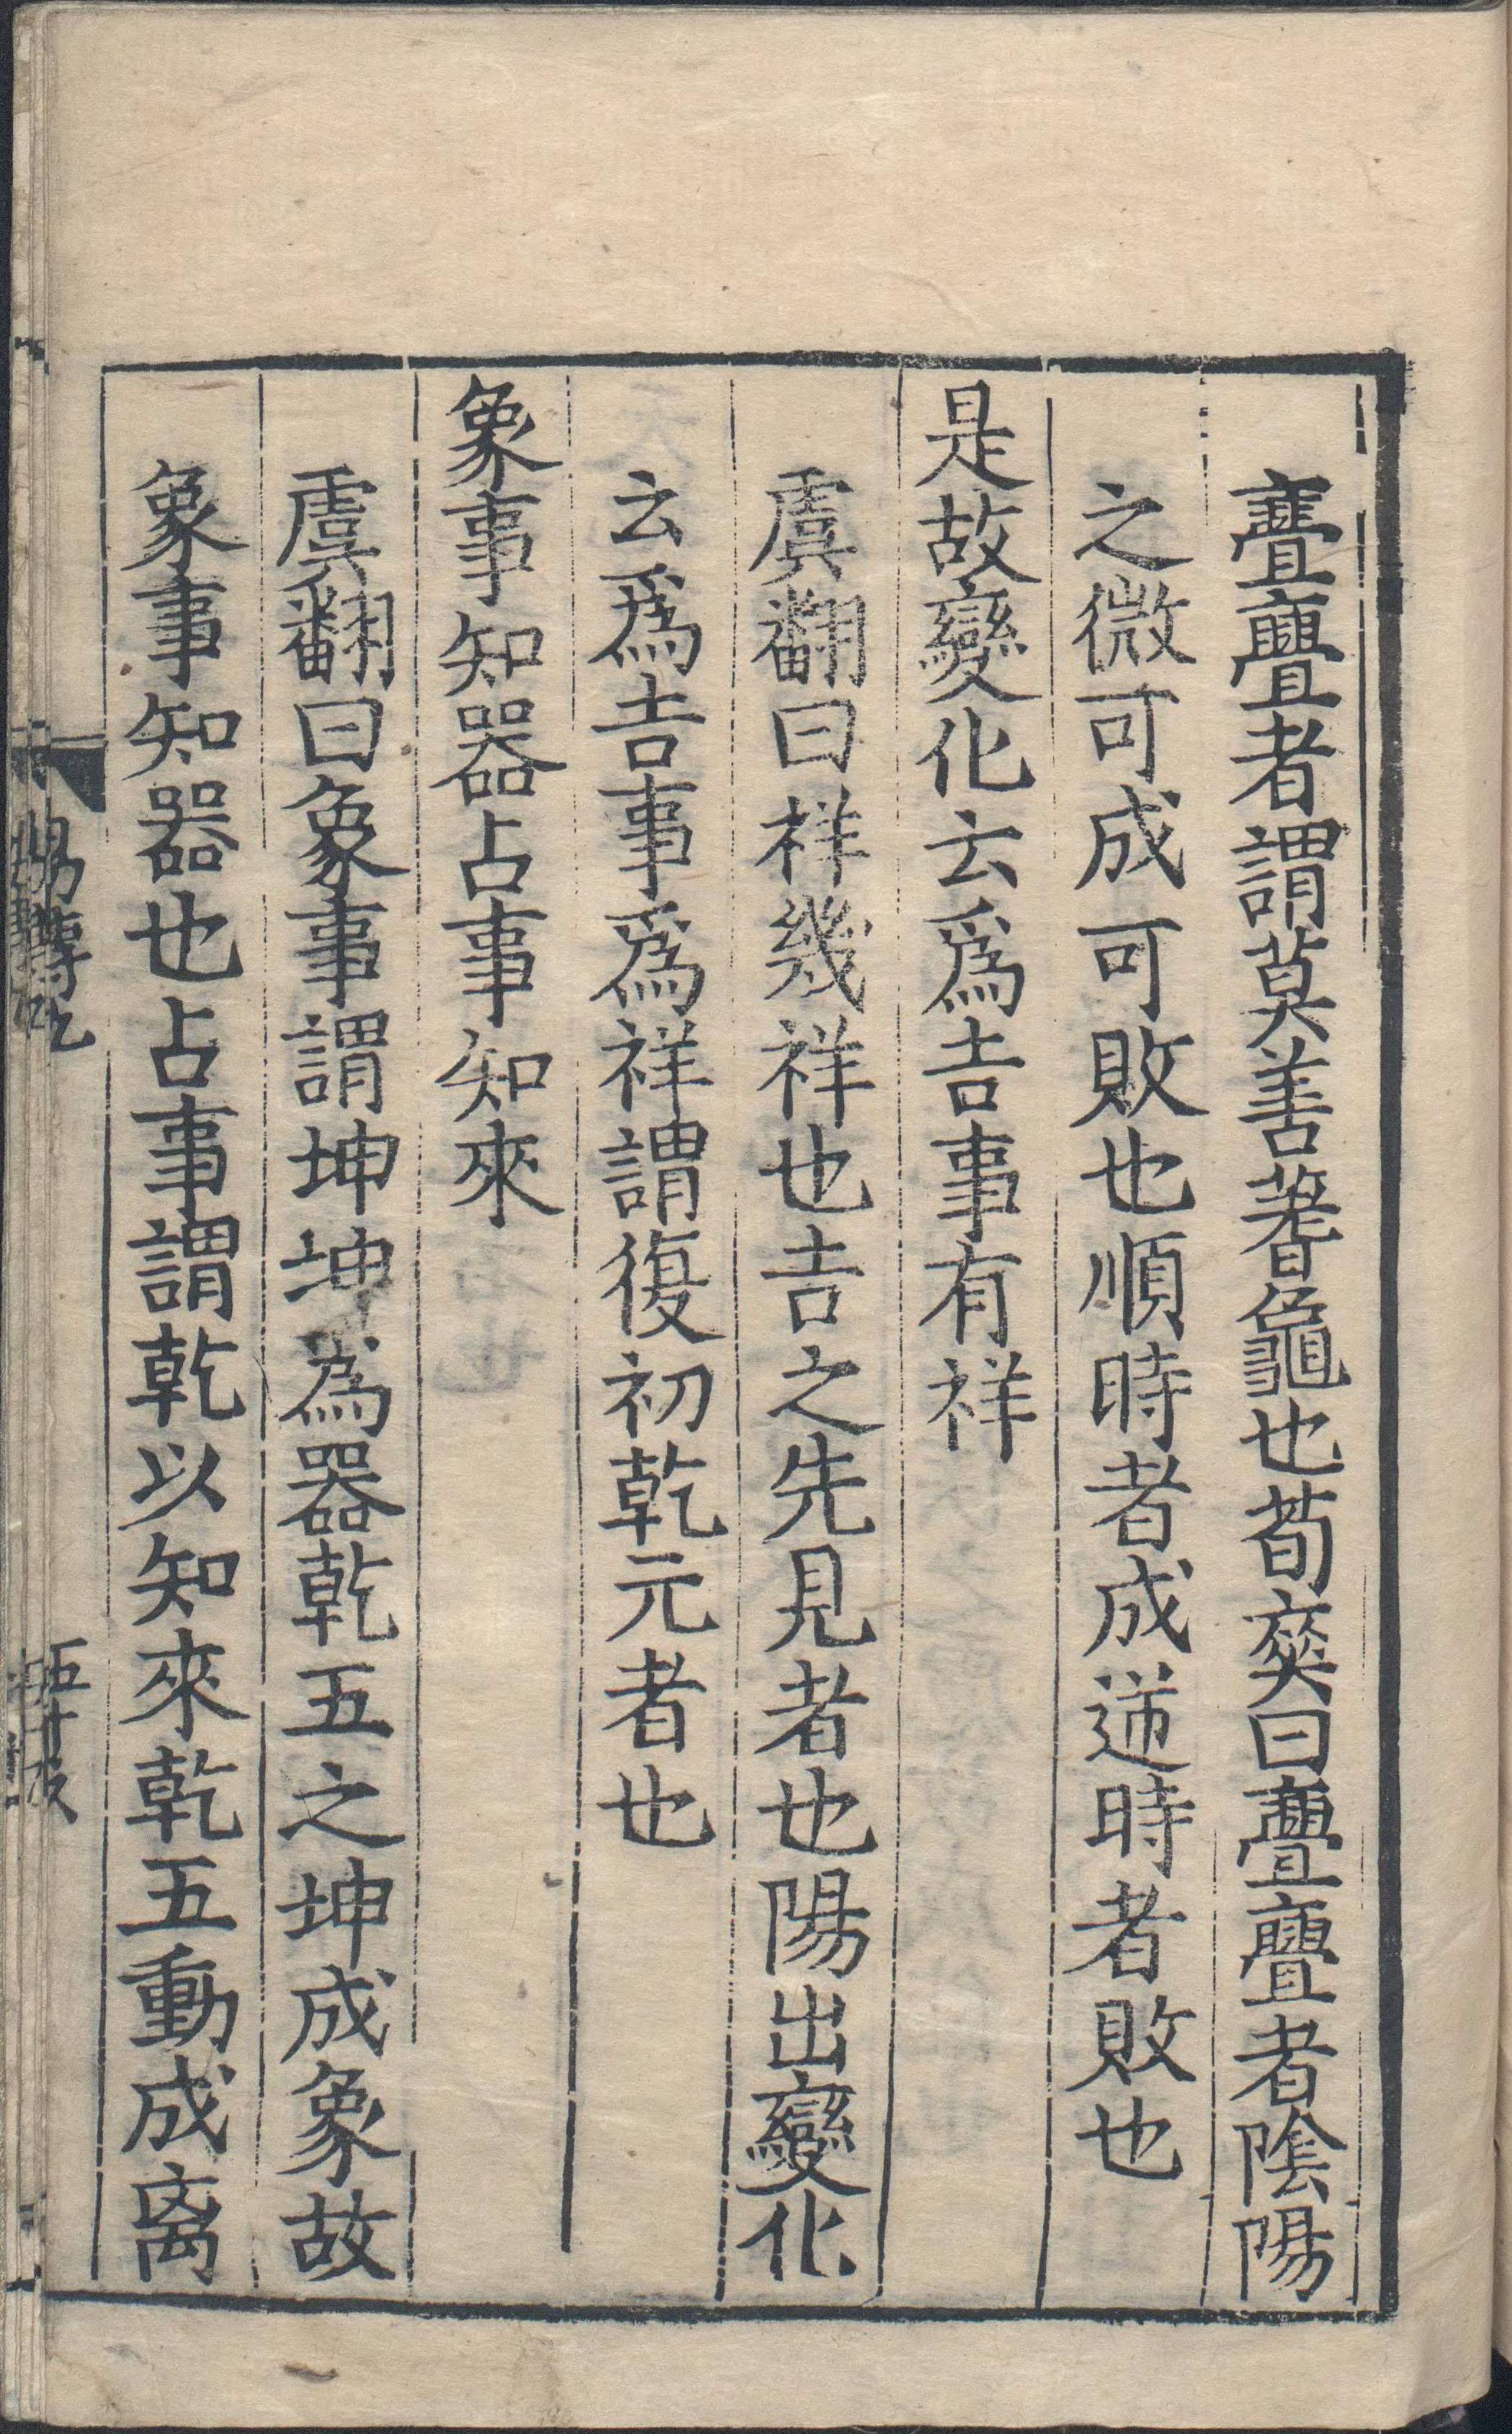 亹亹者謂莫善蓍龜也荀爽曰亹亹者陰陽
之微可成可敗也順時者成逆時者敗也
是故變化云爲吉事有祥
虞翻曰祥幾祥也吉之先見者也陽出變化
云爲吉事爲祥謂復初乾元者也
象事知器占事知來
虞翻曰象事謂坤坤爲器乾五之坤成象故
象事知器也占事謂乾以知來乾五動成离